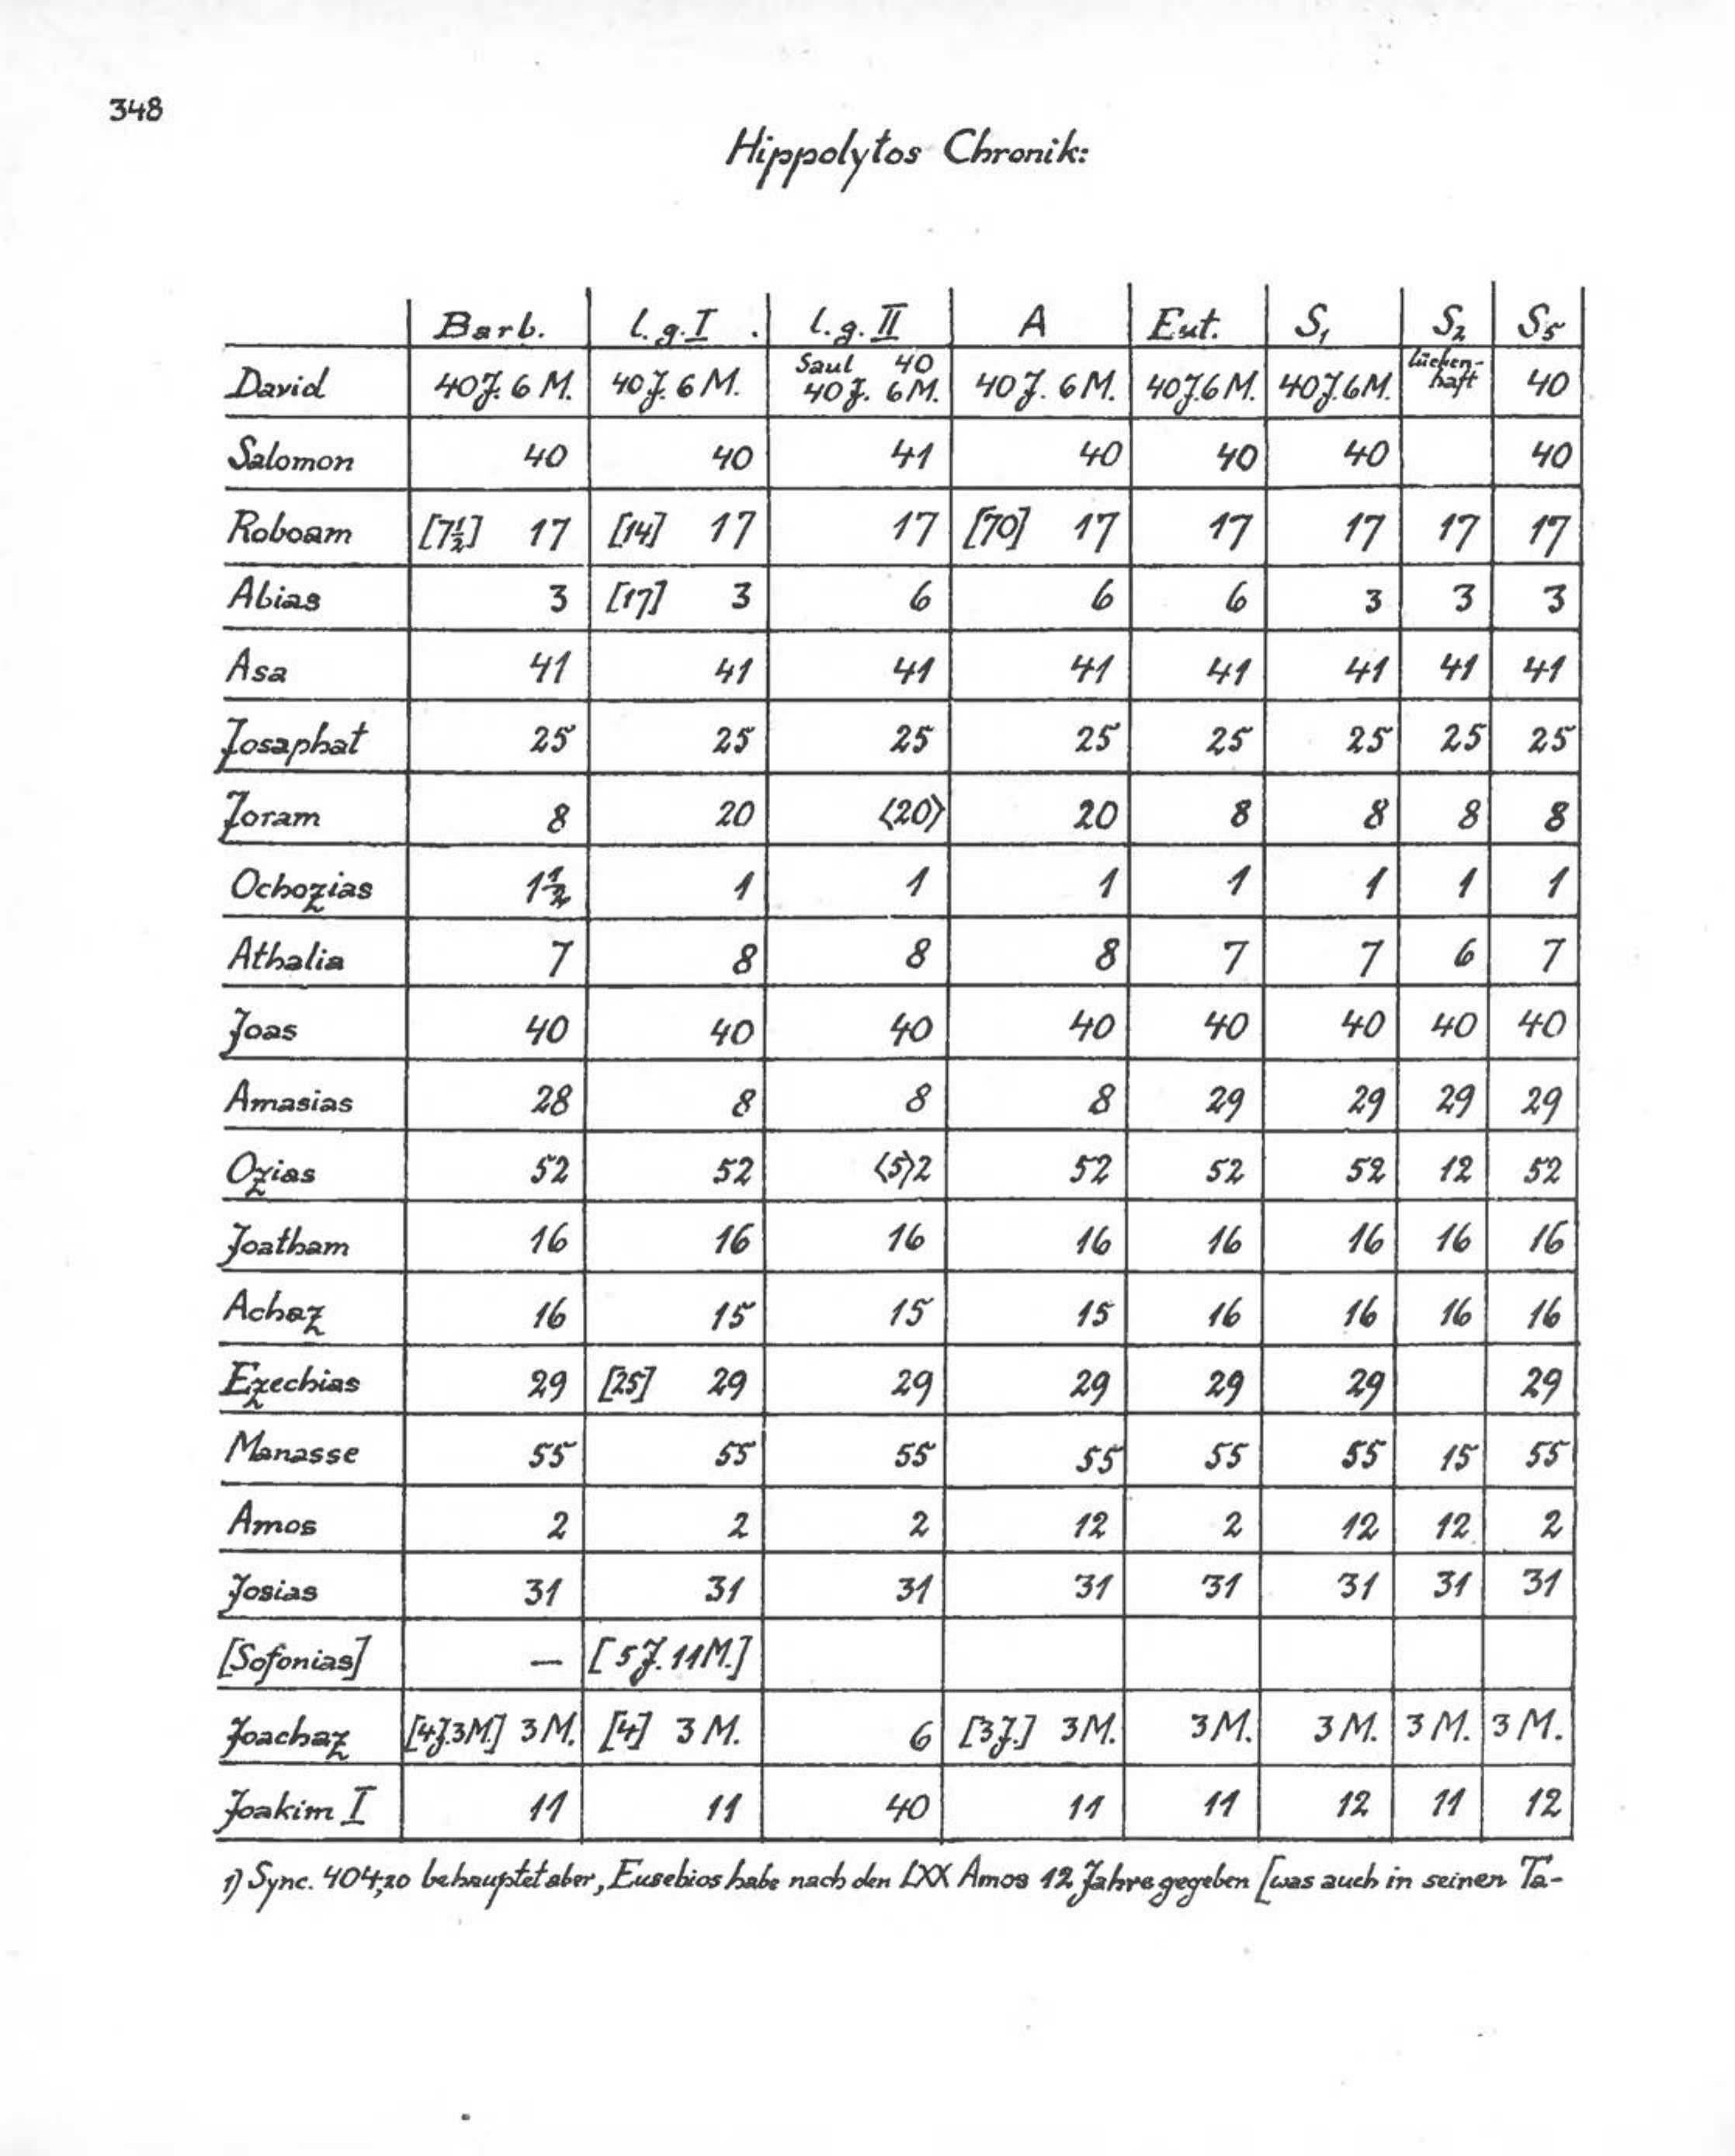 348
Hippolytos Chronik:
Barb. l.g.I . l.g.II A Eut. S1 S2 S5
David 40J. 6 M. 40J. 6 M. Saul 40 40J. 6M. 40J. 6M. 40J.6M. 40J.6M. lückenhaft 40
Salomon 40 40 41 40 40 40 40
Roboam [7½] 17 [14] 17 17 [70] 17 17 17 17 17
Abias 3 [17] 3 6 6 6 3 3 3
Asa 41 41 41 41 41 41 41 41
Josaphat 25 25 25 25 25 25 25 25
Joram 8 20 ⟨20⟩ 20 8 8 8 8
Ochozias 1½ 1 1 1 1 1 1 1
Athalia 7 8 8 8 7 7 6 7
Joas 40 40 40 40 40 40 40 40
Amasias 28 8 8 8 29 29 29 29
Ozias 52 52 ⟨5⟩2 52 52 52 12 52
Joatham 16 16 16 16 16 16 16 16
Achaz 16 15 15 15 16 16 16 16
Ezechias 29 [25] 29 29 29 29 29 29
Manasse 55 55 55 55 55 55 15 55
Amos 2 2 2 12 2 12 12 2
Josias 31 31 31 31 31 31 31 31
[Sofonias] — [5J. 11M.]
Joachaz [4J.3M] 3M. [4] 3 M. 6 [3J.] 3M. 3M. 3M. 3M. 3M.
Joakim I 11 11 40 11 11 12 11 12
1) Sync. 404,20 behauptet aber, Eusebios habe nach den LXX Amos 12 Jahre gegeben [was auch in seinen Ta-